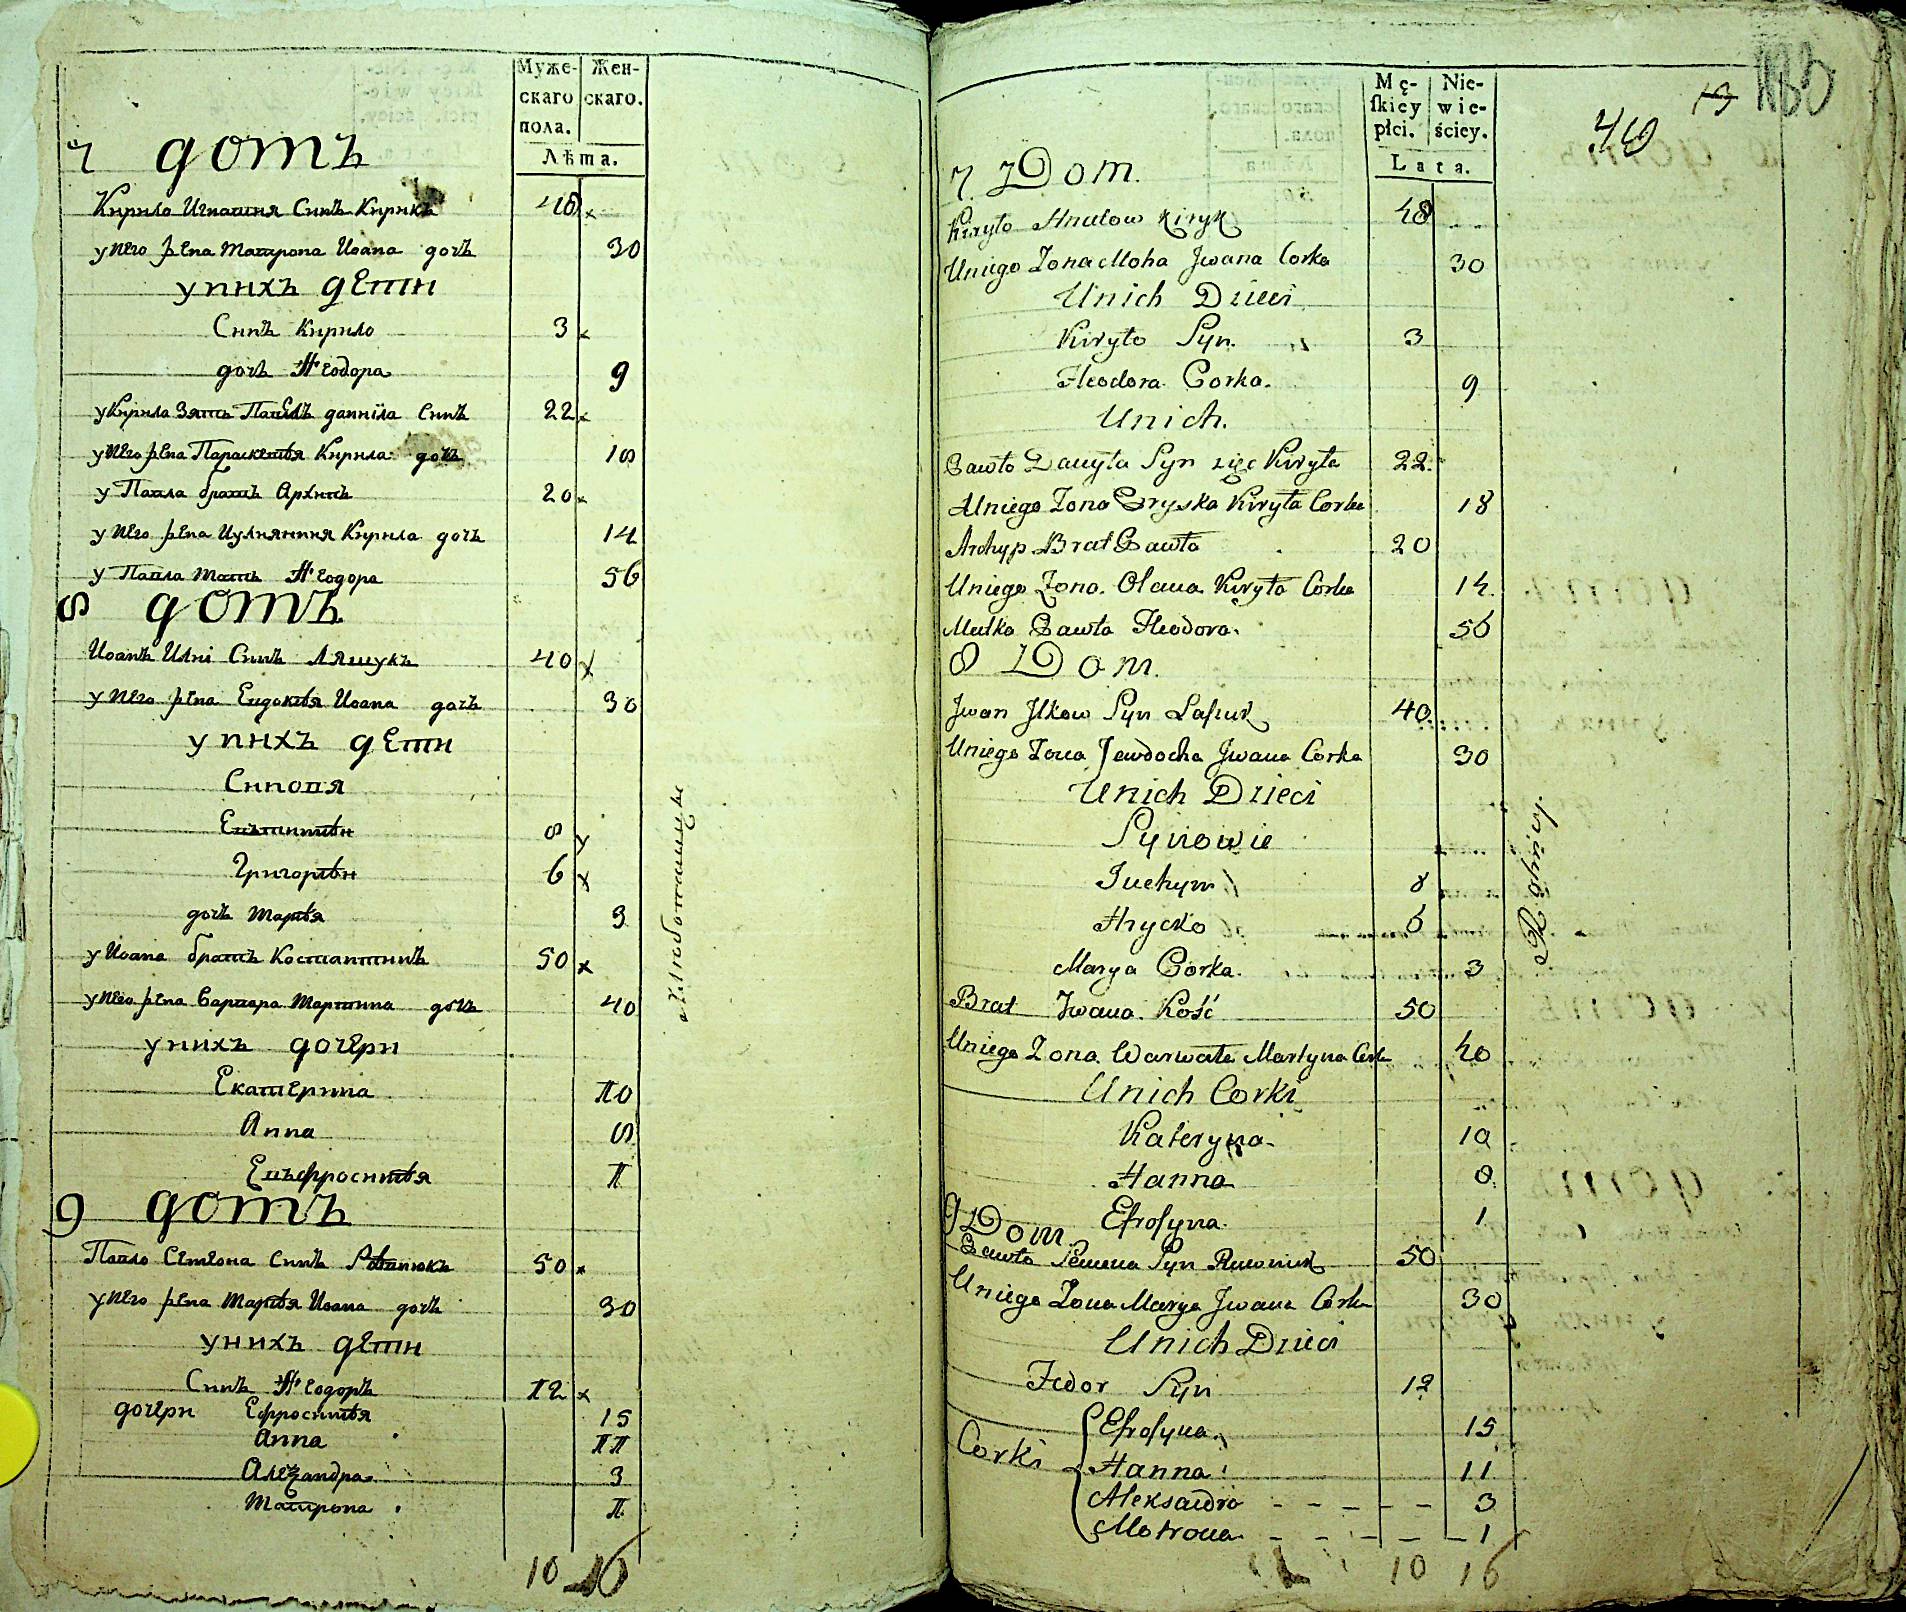 Муже- Жен-
скаго скаго.
пола.
Лѣта.
7 домъ
Кирило Игнатия Синъ Кирикъ 48
у него жена Матрона Иоана дочъ 30
у нихъ дети
Синъ Кирило 3
дочъ Ѳеодора 9
у Кирила зять Павелъ данніла Синъ 22
у него жена Параскевия Кирила дочъ 18
у Павла братъ Архипъ 20
у него жена Иулиянния Кирила дочъ 14
у Павла мать Ѳеодора 56
8 домъ
Иоанъ Илиі Синъ Ляшукъ 40
у него жена Евдокия Иоана дочъ 30
у нихъ дети
Синовя
Евътимий 8
Григорий 6
дочъ Мария 3
у Иоана братъ Костантинъ 50
у него жена Варвара Мартина дочъ 40
у нихъ дочери
Екатерина 10
Анна 8
Евъфросиния 1
9 домъ
Павло Семеона Синъ 50
у него жена Мария Иоана дочъ 30
у нихъ дети
Синъ Ѳеодоръ 12
дочери Ефросиния 15
Анна 11
Алеѯандра 3
Матрона 1
10 16
Mę- Nie-
ſkiey wie-
płci. ściey.
Lata.
13
46
7 Dom.
Kiryło Hnatow Kiryk 48
Uniego Zona Motra Jwana Corka 30
Unich Dzieci
Kiryło Syn. 3
Fleodora Corka. 9
Unich.
Pawło Danyła Syn zięć Kiryła 22
Uniego Zona Pryska Kiryła Corka 18
Archyp Brat Pawła 20
Uniego Zona Olana Kiryła Corka 14
Matka Pawła Fleodora. 56
8 Dom.
Jwan Jlkow Syn Laszuk 40
Uniego Zona Jewdocha Jwana Corka 30
Unich Dzieci
Synowie
Juchym 8
Hrycko 6
Marya Corka. 3
Brat Jwana Kość 50
Uniego Zona Warwara Martyna Cork 40
Unich Corki
Kateryna 10
Hanna 8
Efroſyna 1
9 Dom.
Pawło Semena Syn 50
Uniego Zona Marya Jwana Corka 30
Unich Dzieci
Fedor Syn 12
Corki Efroſyna 15
Hanna 11
Aleksandra 3
Motrona 1
10 16